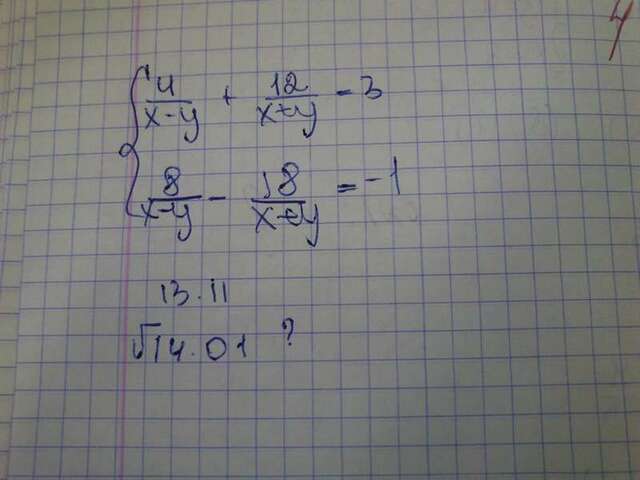 4
{ 4/(x-y) + 12/(x+y) = 3
8/(x-y) - 18/(x+y) = -1
13.11
√14.01 ?